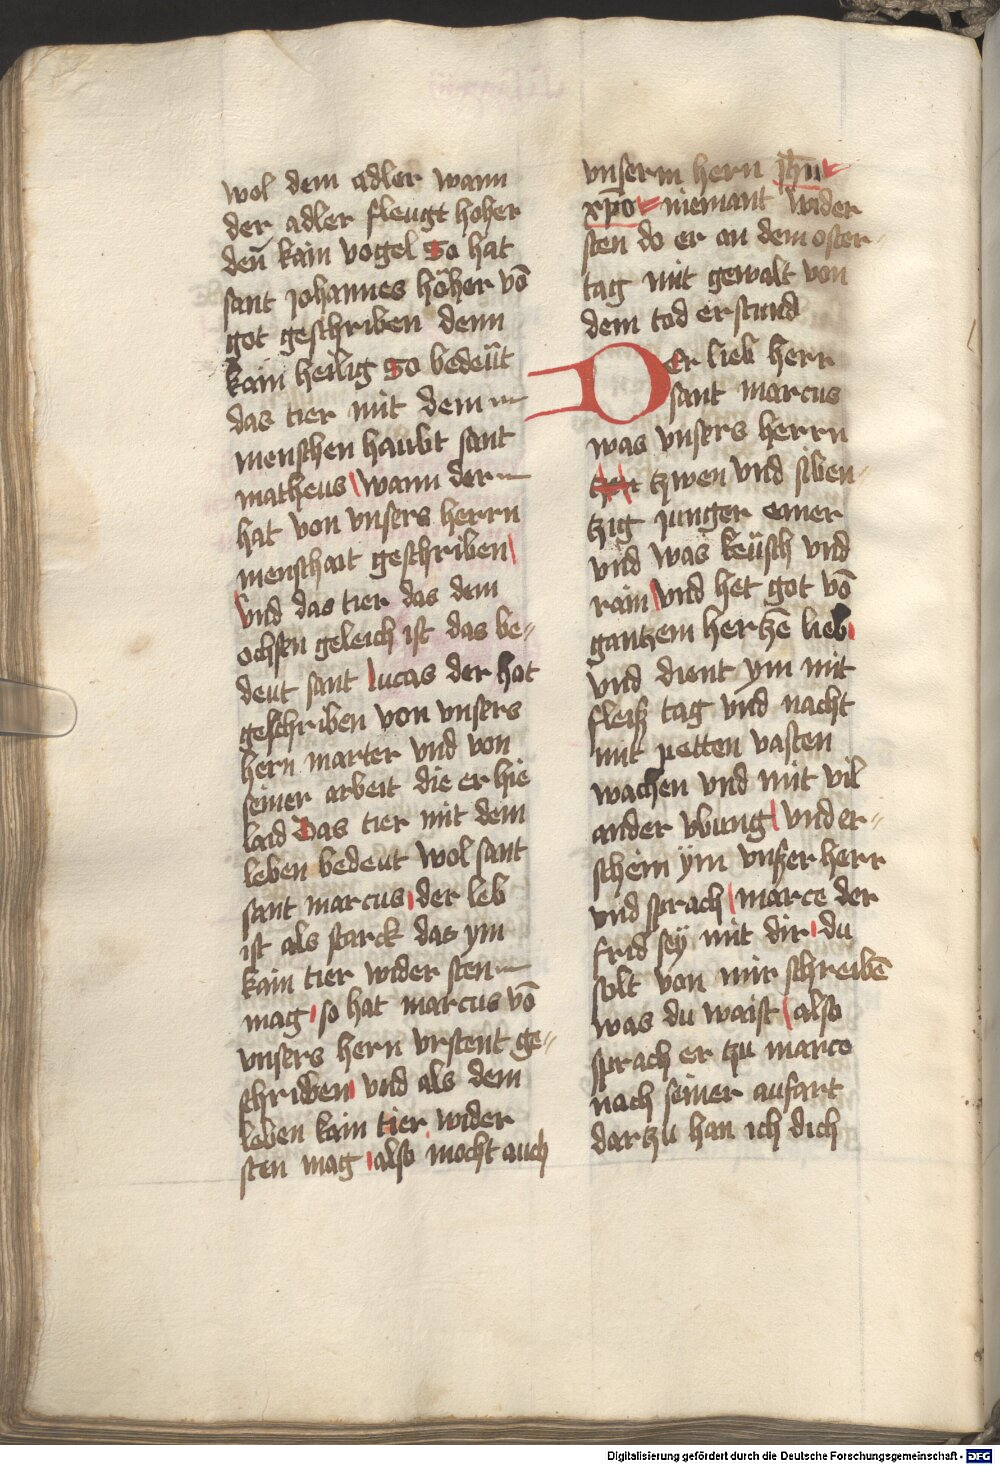 wol dem adler wann
der adler fleugt hoher
deñ kain vogel So hat
sant johannes höher võ
got geschriben denn
kain heilig So bedeüt
das tier mit dem
menschen haubt sant
matheus wann der
hat von vnsers herrn
menschait geschriben
Vnd das tier das dem
ochsen geleich ist das be=
deut sant lucas der hat
geschriben von vnsers
hern marter vnd von
seiner arbeit die er hie
laid Das tier mit dem
leben bedeut wol sant
sant marcus der leb
ist als starck das ym
kain tier wider sten
mag so hat marcus võ
vnsers hern vrstent ge=
schriben vnd als dem
leben kain tier wider
sten mag also mocht auch
vnserm hern jhu
xpo niemant wider
sten do er an dem oster=
tag mit gewalt von
dem tod erstund
Der lieb herr
sant marcus
was vnsers herrn
tzwen vnd siben=
tzig junger ainer
vnd was keüsch vnd
rain vnd het got võ
gantzem hertzē lieb
vnd dient ym mit
fleiß tag vnd nacht
mit petten vasten
wachen vnd mit vil
ander vbung vnd er=
schein ÿm vnßer herr
vnd sprach marce der
frid seÿ mit dir du
solt von mir schreibē
was du waist also
sprach er tzu marco
nach seiner aufart
dartzu han ich dich
Digitalisierung gefördert durch die Deutsche Forschungsgemeinschaft - DFG